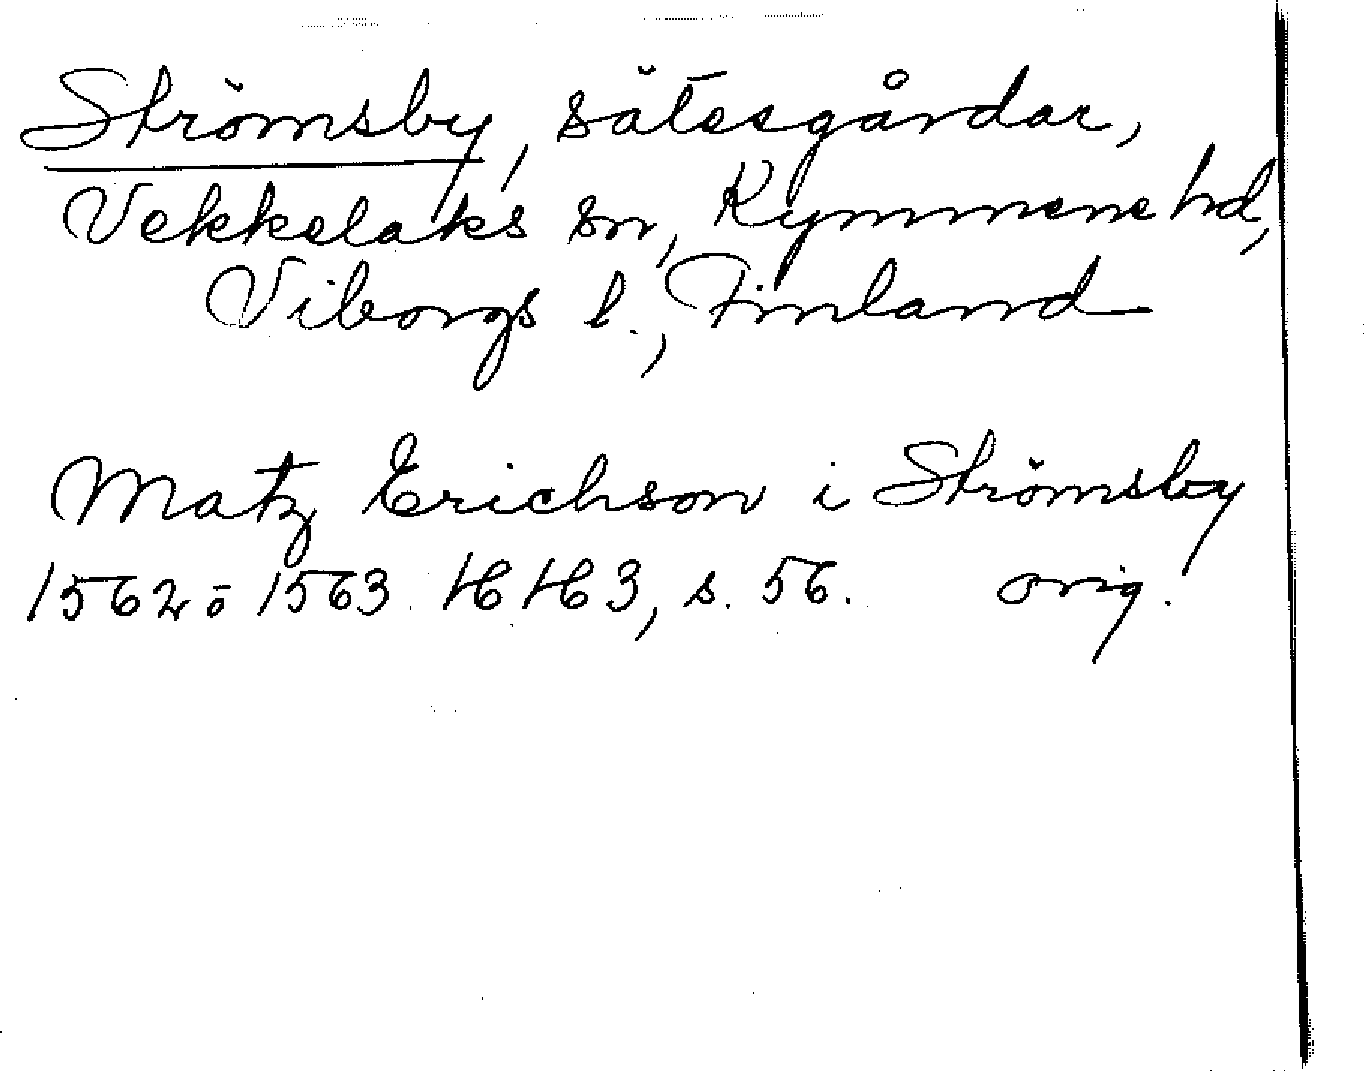 Strömsby, sätesgårdar,
Vekkelaks sn, Kymmene hd,
Viborgs l., Finland
Matz Erichson i Strömsby
1562 o 1563. HH 3, s. 56. orig.